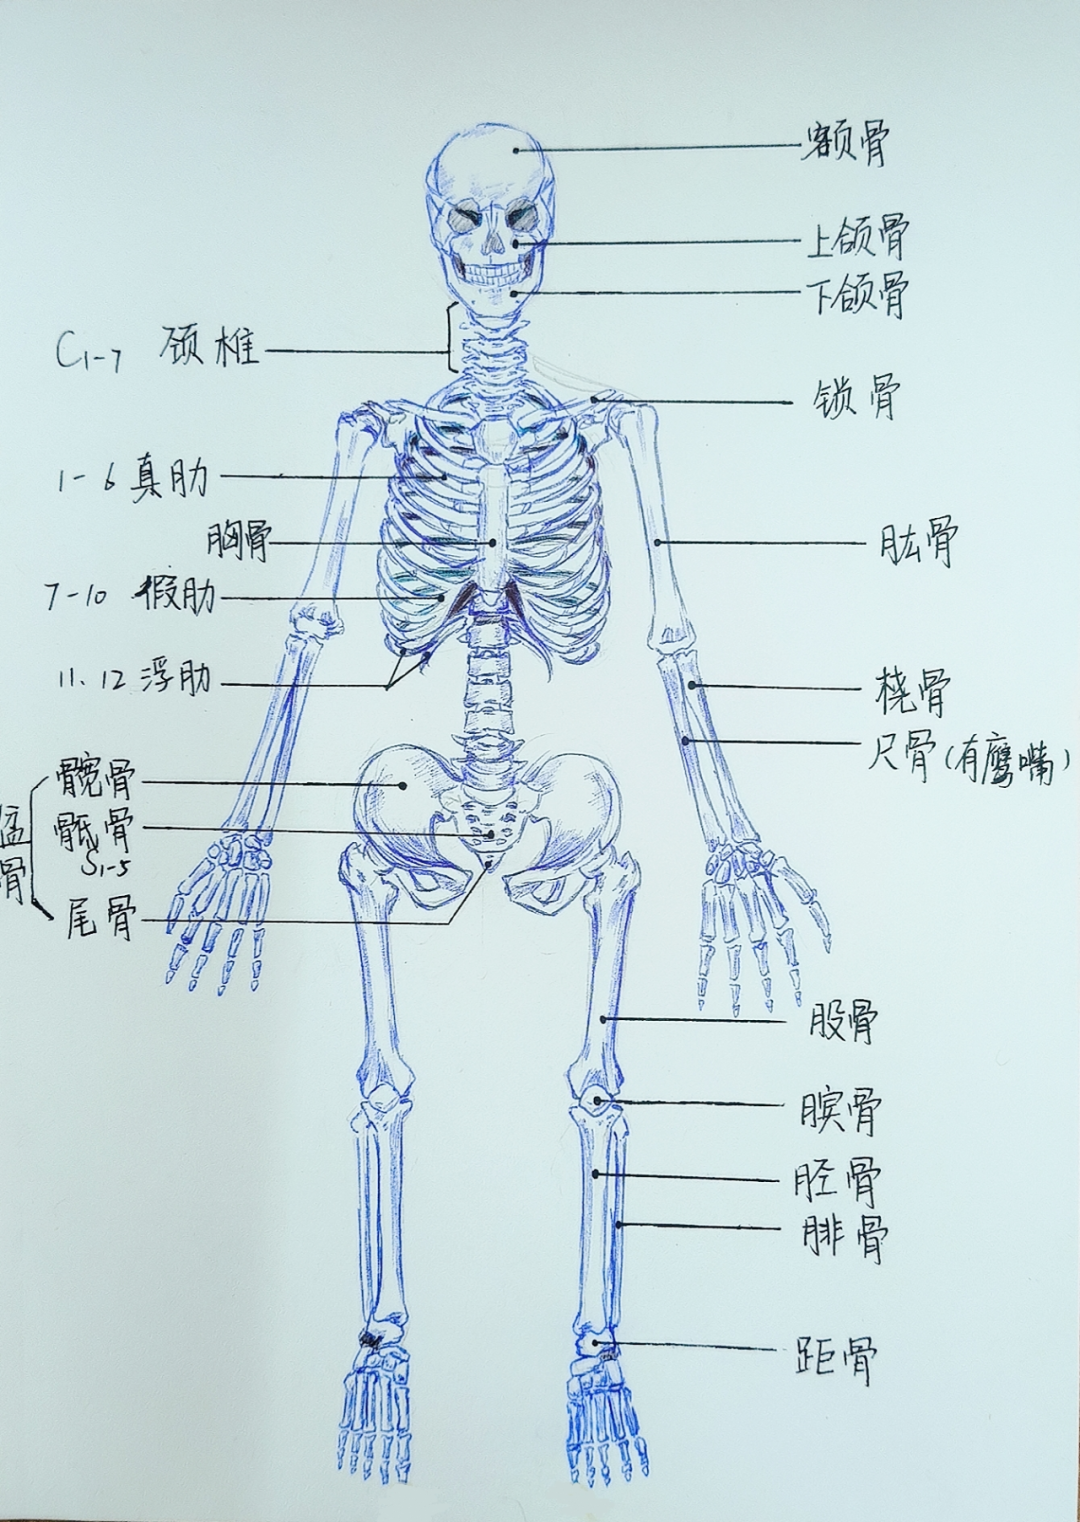 额骨
上颌骨
下颌骨
C1-7 颈椎
锁骨
1-6 真肋
胸骨
肱骨
7-10 假肋
11.12 浮肋
桡骨
尺骨(有鹰嘴)
髋骨
骶骨
S1-5
尾骨
骨
股骨
膑骨
胫骨
腓骨
距骨